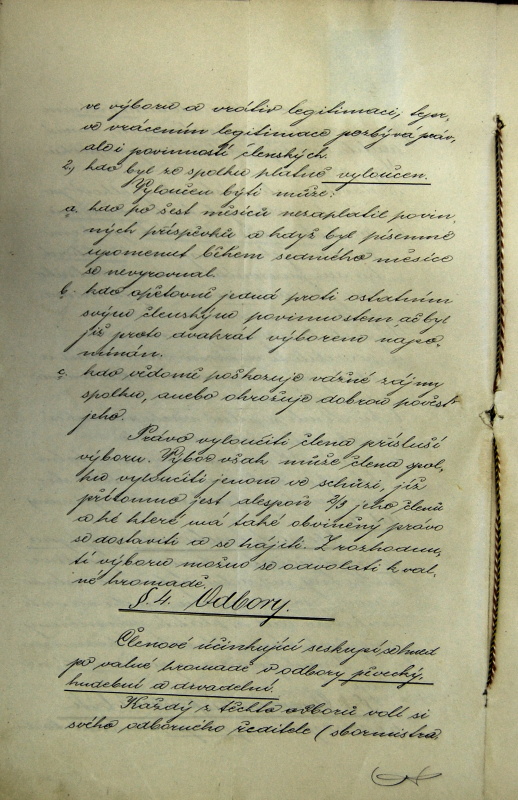 ve výboru a vrátiv legitimaci, tepr-
ve vrácením legitimace pozbývá práv,
ale i povinností členských.
2, kdo byl ze spolku platně vyloučen.
Vyloučen býti může:
a. kdo po šest měsíců nezaplatil povin-
ných příspěvků a když byl písemně
upomenut během sedmého měsíce
se nevyrovnal.
b. kdo opětovně jedná proti ostatním
svým členským povinnostem, ač byl
již proto dvakrát výborem napo-
mínán.
c. kdo vědomě poškozuje vážné zájmy
spolku, anebo ohrožuje dobrou pověst
jeho.
Právo vyloučiti člena přísluší
výboru. Výbor však může člena spol-
ku vyloučiti jenom ve schůzi, již
přítomno jest alespoň 2/3 jeho členů
a ke které má také obviněný právo
se dostaviti a se hájiti. Z rozhodnu-
tí výboru možno se odvolati k val-
né hromadě.
§. 4. Odbory.
Členové účinkující seskupí se hned
po valné hromadě v odbory pěvecký,
hudební a divadelní.
Každý z těchto odborů volí si
svého odborného ředitele (sbormistra